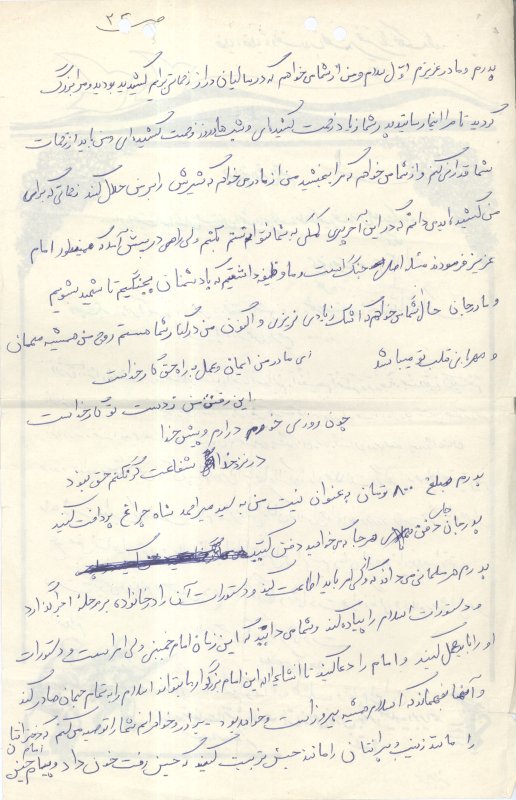 ص ۳
پدرم و مادر عزیزم اول سلام و من از شما می خواهم که در سالیان دراز زحمتی برایم کشیدید بودید و مرا بزرگ
کردید تا مرا اینجا رسانیدید پدر شما زیاد زحمت کشیده ای و شبها و روز زحمت کشیده ای و من باید از زحمات
شما قدردانی کنم و از شما می خواهم که مرا ببخشید من از مادرم می خواهم که شیرش را بر من حلال کند زحماتی که برای
من کشیده اید می دانم که در این آخر پیری کمکی به شما نتوانستم بکنم ولی راهی در پیش آمد که همینطور امام
عزیز فرموده مسئله اصلی جنگ است و ما وظیفه داشتیم که با دشمنان بجنگیم تا شهید بشویم
و مادر جان حال از شما می خواهم که اشک زیادی نریزی و اکنون من در کنار شما هستم روح من همیشه مهمان
و مهرابی قلب تو میباشد
ای مادر من ایمان و عمل به راه حق کار خداست
این رفتن من ز دست تو کار خداست
چون روزی خودم دارم و پیش خدا
در نزد خدا شفاعت گر نکنم حق نبود
پدرم مبلغ ۸۰۰ تومان به عنوان نیت من به سید میر احمد شاه چراغ پرداخت کنید
پدر جان دفن هر جا که می خواهید دفن کنید
پدرم هر مسلمانی می داند که ولی امر باید اطاعت کند و دستورات آن را در خانواده به مرحله اجرا گذارد
و دستورات اسلام را پیاده کند و شما می دانید که این زمان امام خمینی ولی امر است و دستورات
او را باید عمل کنند و امام را دعا کنید تا انشاءالله این امام بزرگوار ما بتواند اسلام را به تمام جهان صادر کند
و آنها بفهماند که اسلام همیشه پیروز است و خواهد بود برادر و خواهرانم شما را توصیه می کنم که دخترانتان
را مانند زینب و پسرانتان را مانند حسین تربیت کنید که حسین رفت خون داد و پیام حسین